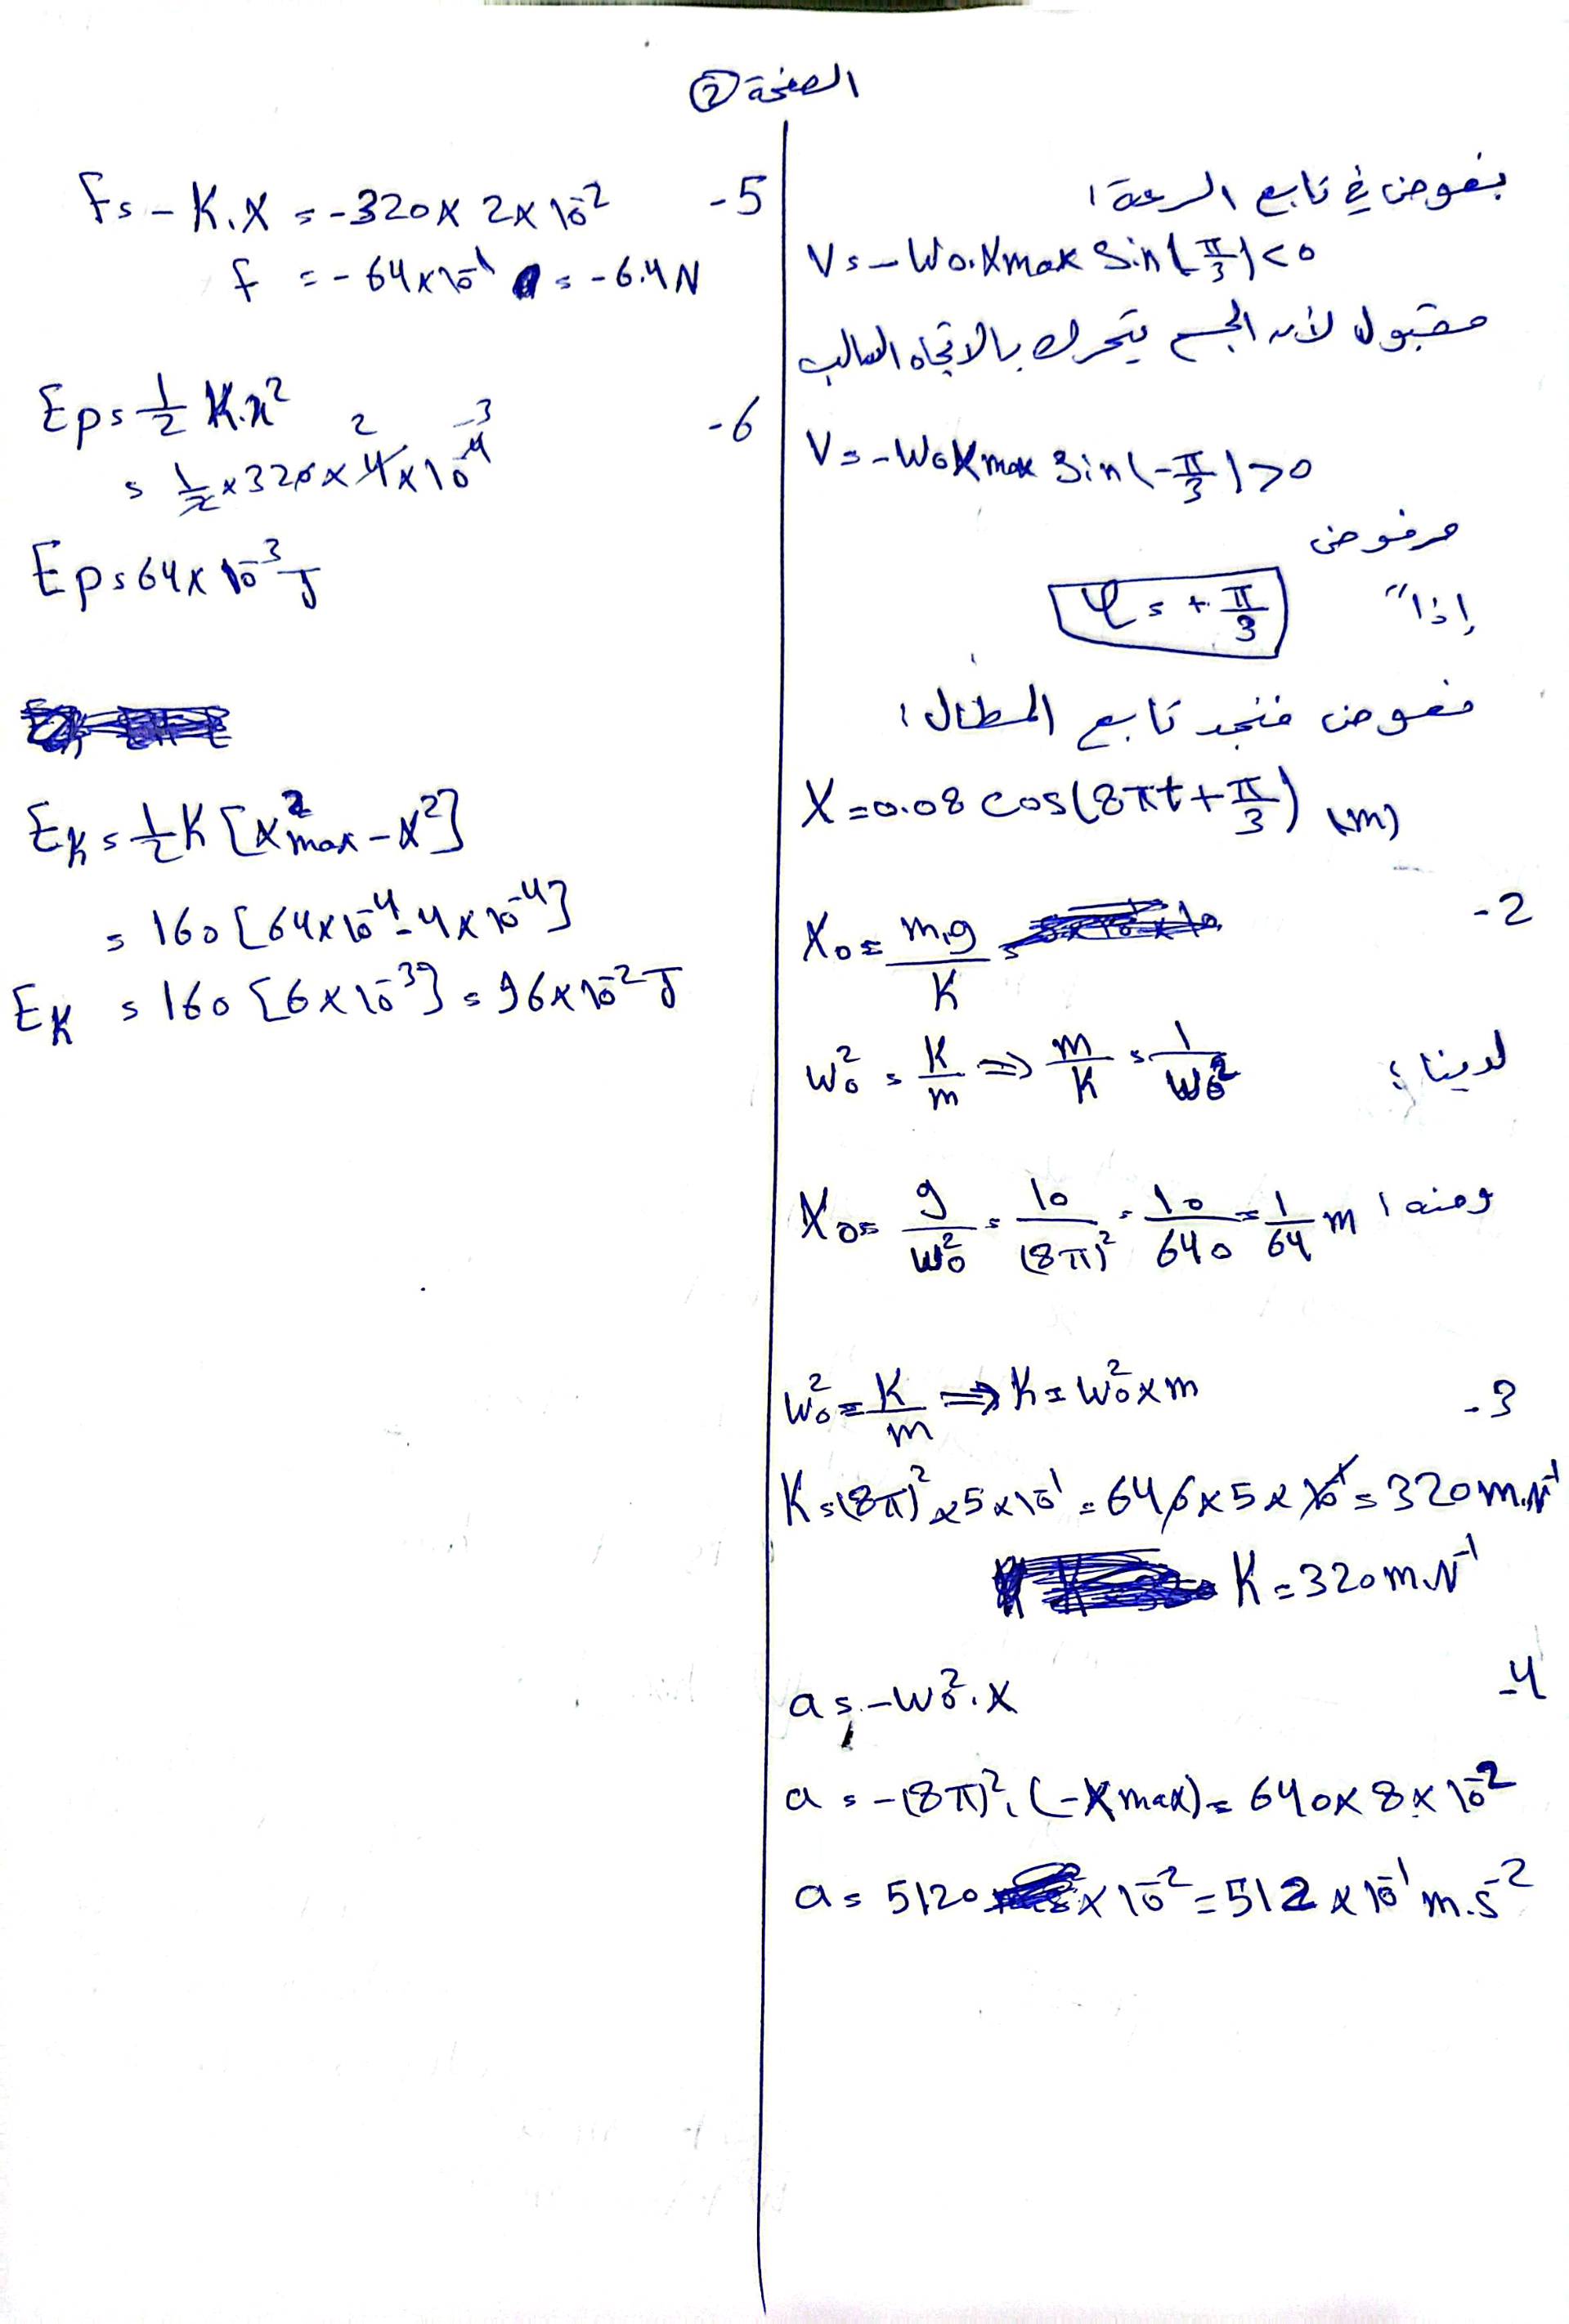 الصفحة ②
بنعوض في تابع السرعة:
V = -W₀.Xmax Sin(π/3) < 0
مقبول لأن الجسم يتحرك بالاتجاه السالب
V = -W₀Xmax Sin(-π/3) > 0
مرفوض
إذاً φ = +π/3
نعوض فنجد تابع المطال:
X = 0.08 cos(8πt + π/3) (m)
-2 X₀ = m.g/K =
لدينا: W₀² = K/m ⇒ m/K = 1/W₀²
ومنه: X₀ = g/W₀² = 10/(8π)² = 10/640 = 1/64 m
-3 W₀² = K/m ⇒ K = W₀² x m
K = (8π)² x 5 x 10⁻¹ = 640 x 5 x 10⁻¹ = 320 m.N⁻¹
K = 320 m.N⁻¹
-4 a = -W₀².X
a = -(8π)².(-Xmax) = 640 x 8 x 10⁻²
a = 5120 x 10⁻² = 512 x 10⁻¹ m.s⁻²
-5 F = -K.X = -320 x 2 x 10⁻²
F = -64 x 10⁻¹ = -6.4 N
-6 Ep = 1/2 K.x²
= 1/2 x 320 x 4 x 10⁻⁴
Ep = 64 x 10⁻³ J
EK = 1/2 K [X²max - X²]
= 160 [64 x 10⁻⁴ - 4 x 10⁻⁴]
EK = 160 [6 x 10⁻³] = 96 x 10⁻² J